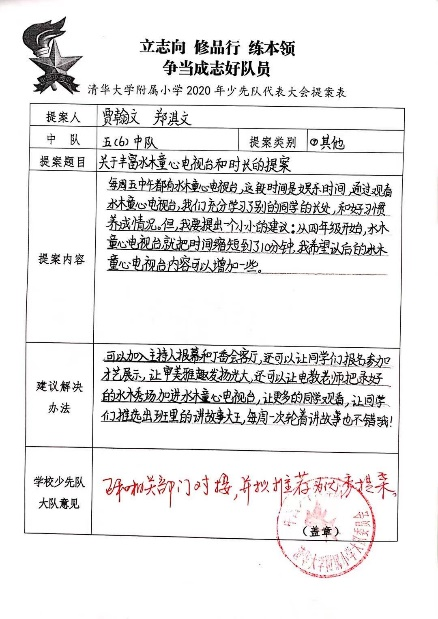 立志向 修品行 练本领
争当成志好队员
清华大学附属小学2020年少先队代表大会提案表
提案人 贾翰文 郑淇文
中队 五(6)中队 提案类别 ⑦其他
提案题目 关于丰富水木童心电视台和时长的提案
提案内容
每周五中午都有水木童心电视台,这段时间是娱乐时间,通过观看
水木童心电视台,我们充分学习了别的同学的长处,和好习惯
养成情况。但,我要提出一个小小的建议:从四年级开始,水木
童心电视台就把时间缩短到了10分钟,我希望以后的水木
童心电视台内容可以增加一些。
建议解决
办法
可以加入主持人报幕和丁香会客厅,还可以让同学们报名参加
才艺展示,让审美雅趣发扬光大,还可以让电教老师把录好
的水木秀场加进水木童心电视台,让更多的同学观看,让同学
们推选出班里的讲故事大王,每周一次轮着讲故事也不错哦!
学校少先队
大队意见
已和相关部门对接,并拟推荐为优秀提案。
(盖章)